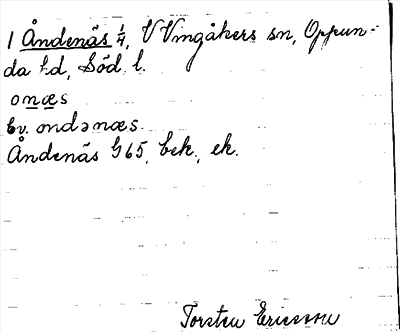 1 Åndenäs 1/4, V Vingåkers sn, Oppun-
da hd, Söd. l.
onæs
bv. ondənæs.
Åndenäs G65, bek., ek.
Torsten Ericsson